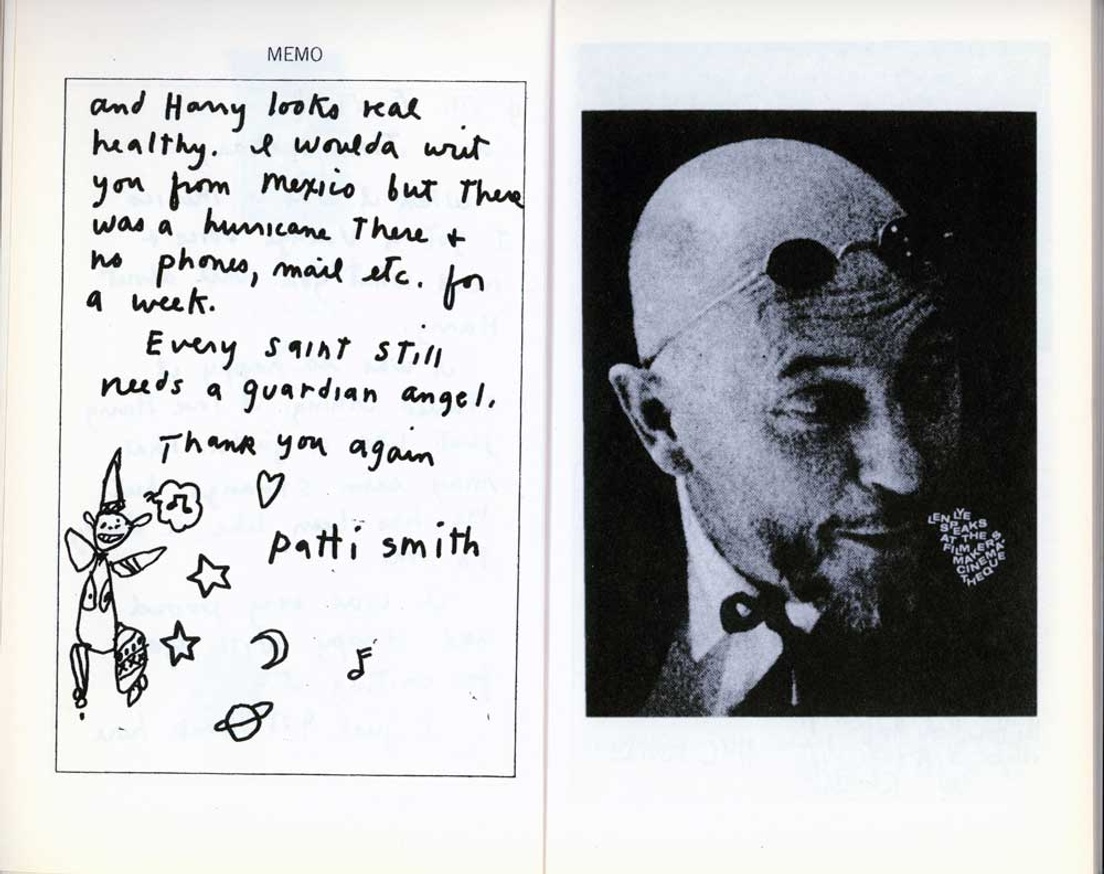 MEMO
and Harry looks real
healthy. I woulda writ
you from Mexico but there
was a hurricane there +
no phones, mail etc. for
a week.
Every saint still
needs a guardian angel.
Thank you again
patti smith
LEN LYE
SPEAKS
AT THE
FILM
MAKERS
CINEMA
THEQUE